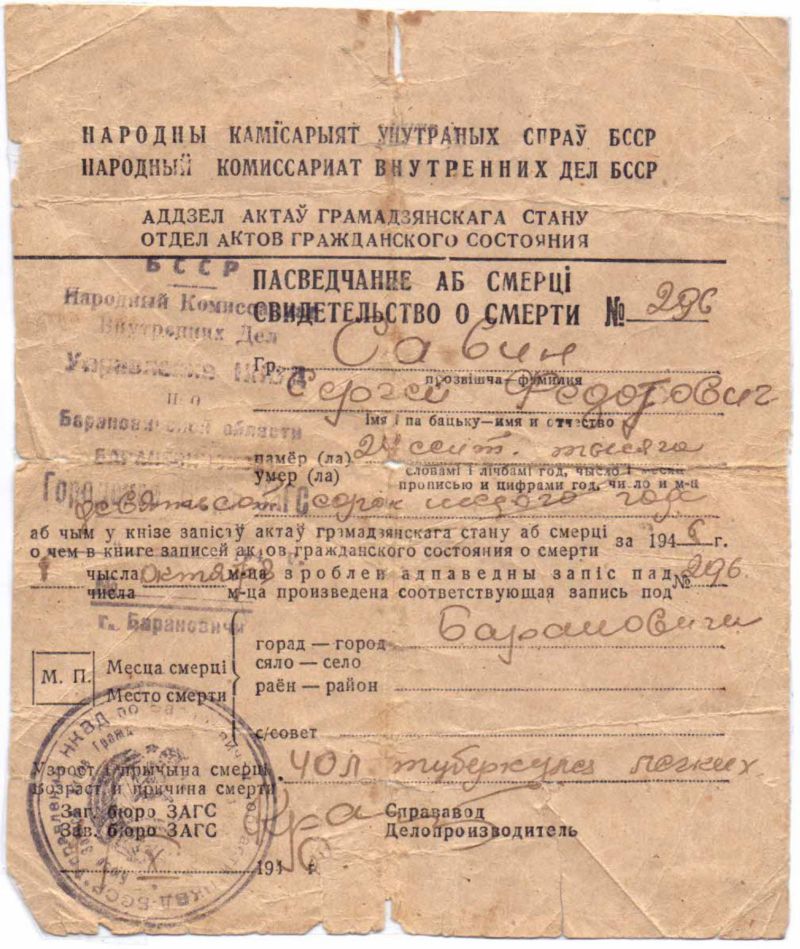 НАРОДНЫ КАМІСАРЫЯТ УНУТРАНЫХ СПРАЎ БССР
НАРОДНЫЙ КОМИССАРИАТ ВНУТРЕННИХ ДЕЛ БССР
АДДЗЕЛ АКТАЎ ГРАМАДЗЯНСКАГА СТАНУ
ОТДЕЛ АКТОВ ГРАЖДАНСКОГО СОСТОЯНИЯ
БССР
Народный Комиссариат
Внутренних Дел
Управление НКВД
по
Барановичской области
Г. Барановичи
ПАСВЕДЧАННЕ АБ СМЕРЦІ
СВИДЕТЕЛЬСТВО О СМЕРТИ № 296
Гр. Савин
прозвішча—фамилия
Сергей Федотович
Імя і па бацьку—имя и отчество
памёр (ла) 24 сент. тысяча
умер (ла)
словамі і лічбамі год, число і месяц
прописью и цифрами год, число и м-ц
девятьсот сорок шестого года
аб чым у кнізе запісаў актаў грамадзянскага стану аб смерці
о чем в книге записей актов гражданского состояния о смерти за 1946 г.
1 чысла октября м-ца зроблен адпаведны запіс пад № 296
числа м-ца произведена соответствующая запись под
горад — город Барановичи
сяло — село
раён — район
с/совет
Месца смерці
Место смерти
М. П.
Узрост і прычына смерці
Возраст и причина смерти 40 л туберкулез легких.
Заг. бюро ЗАГС
Зав. бюро ЗАГС
Справавод
Делопроизводитель
194 г.